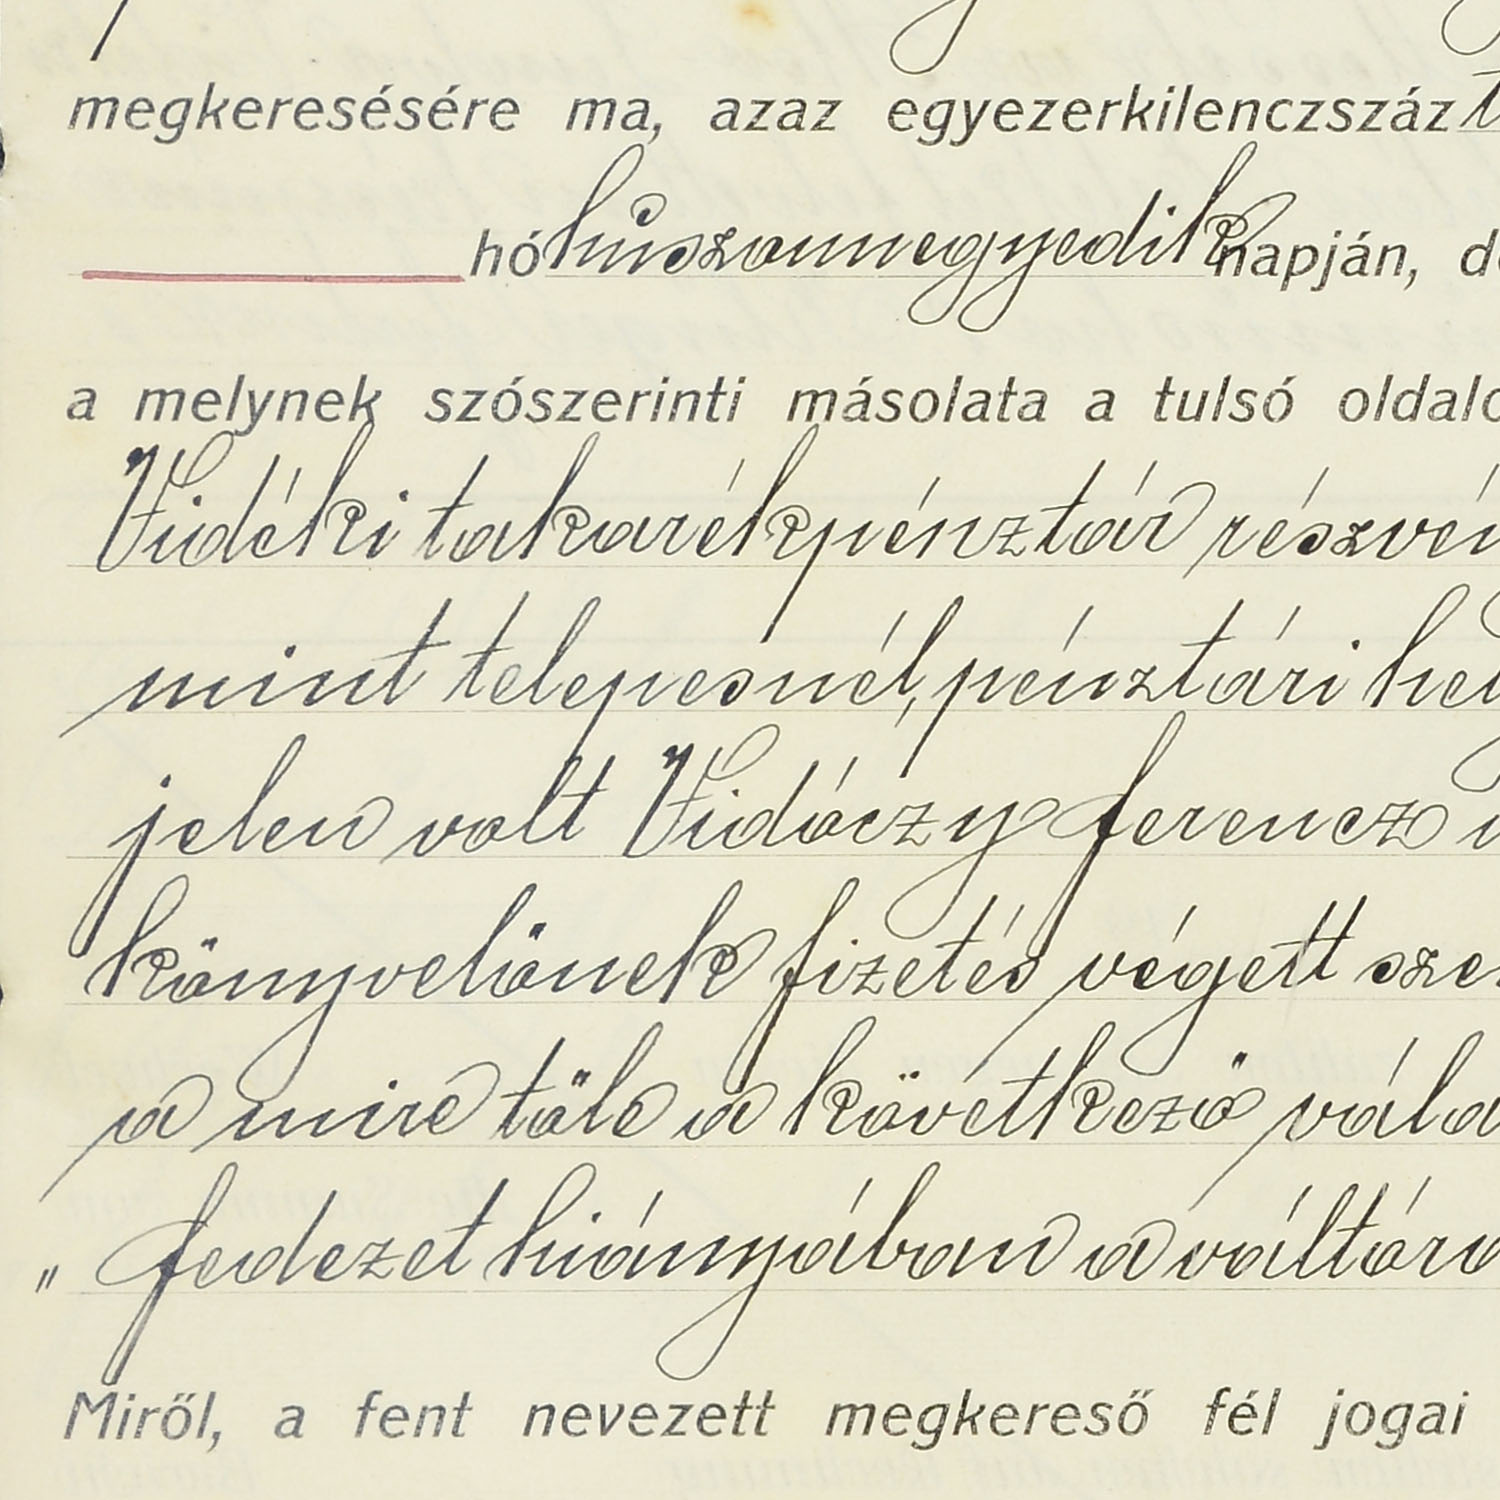 megkeresésére ma, azaz egyezerkilenczszáz
hó huszonnegyedik napján,
a melynek szószerinti másolata a tulsó
Vidéki takarékpénztár
mint telepesnél, pénztári
jelen volt Vidóczy Ferencz
könyvelőnek fizetés végett
a mire tőle a következő
" fedezet hiányában a
Miről, a fent nevezett megkereső fél jogai